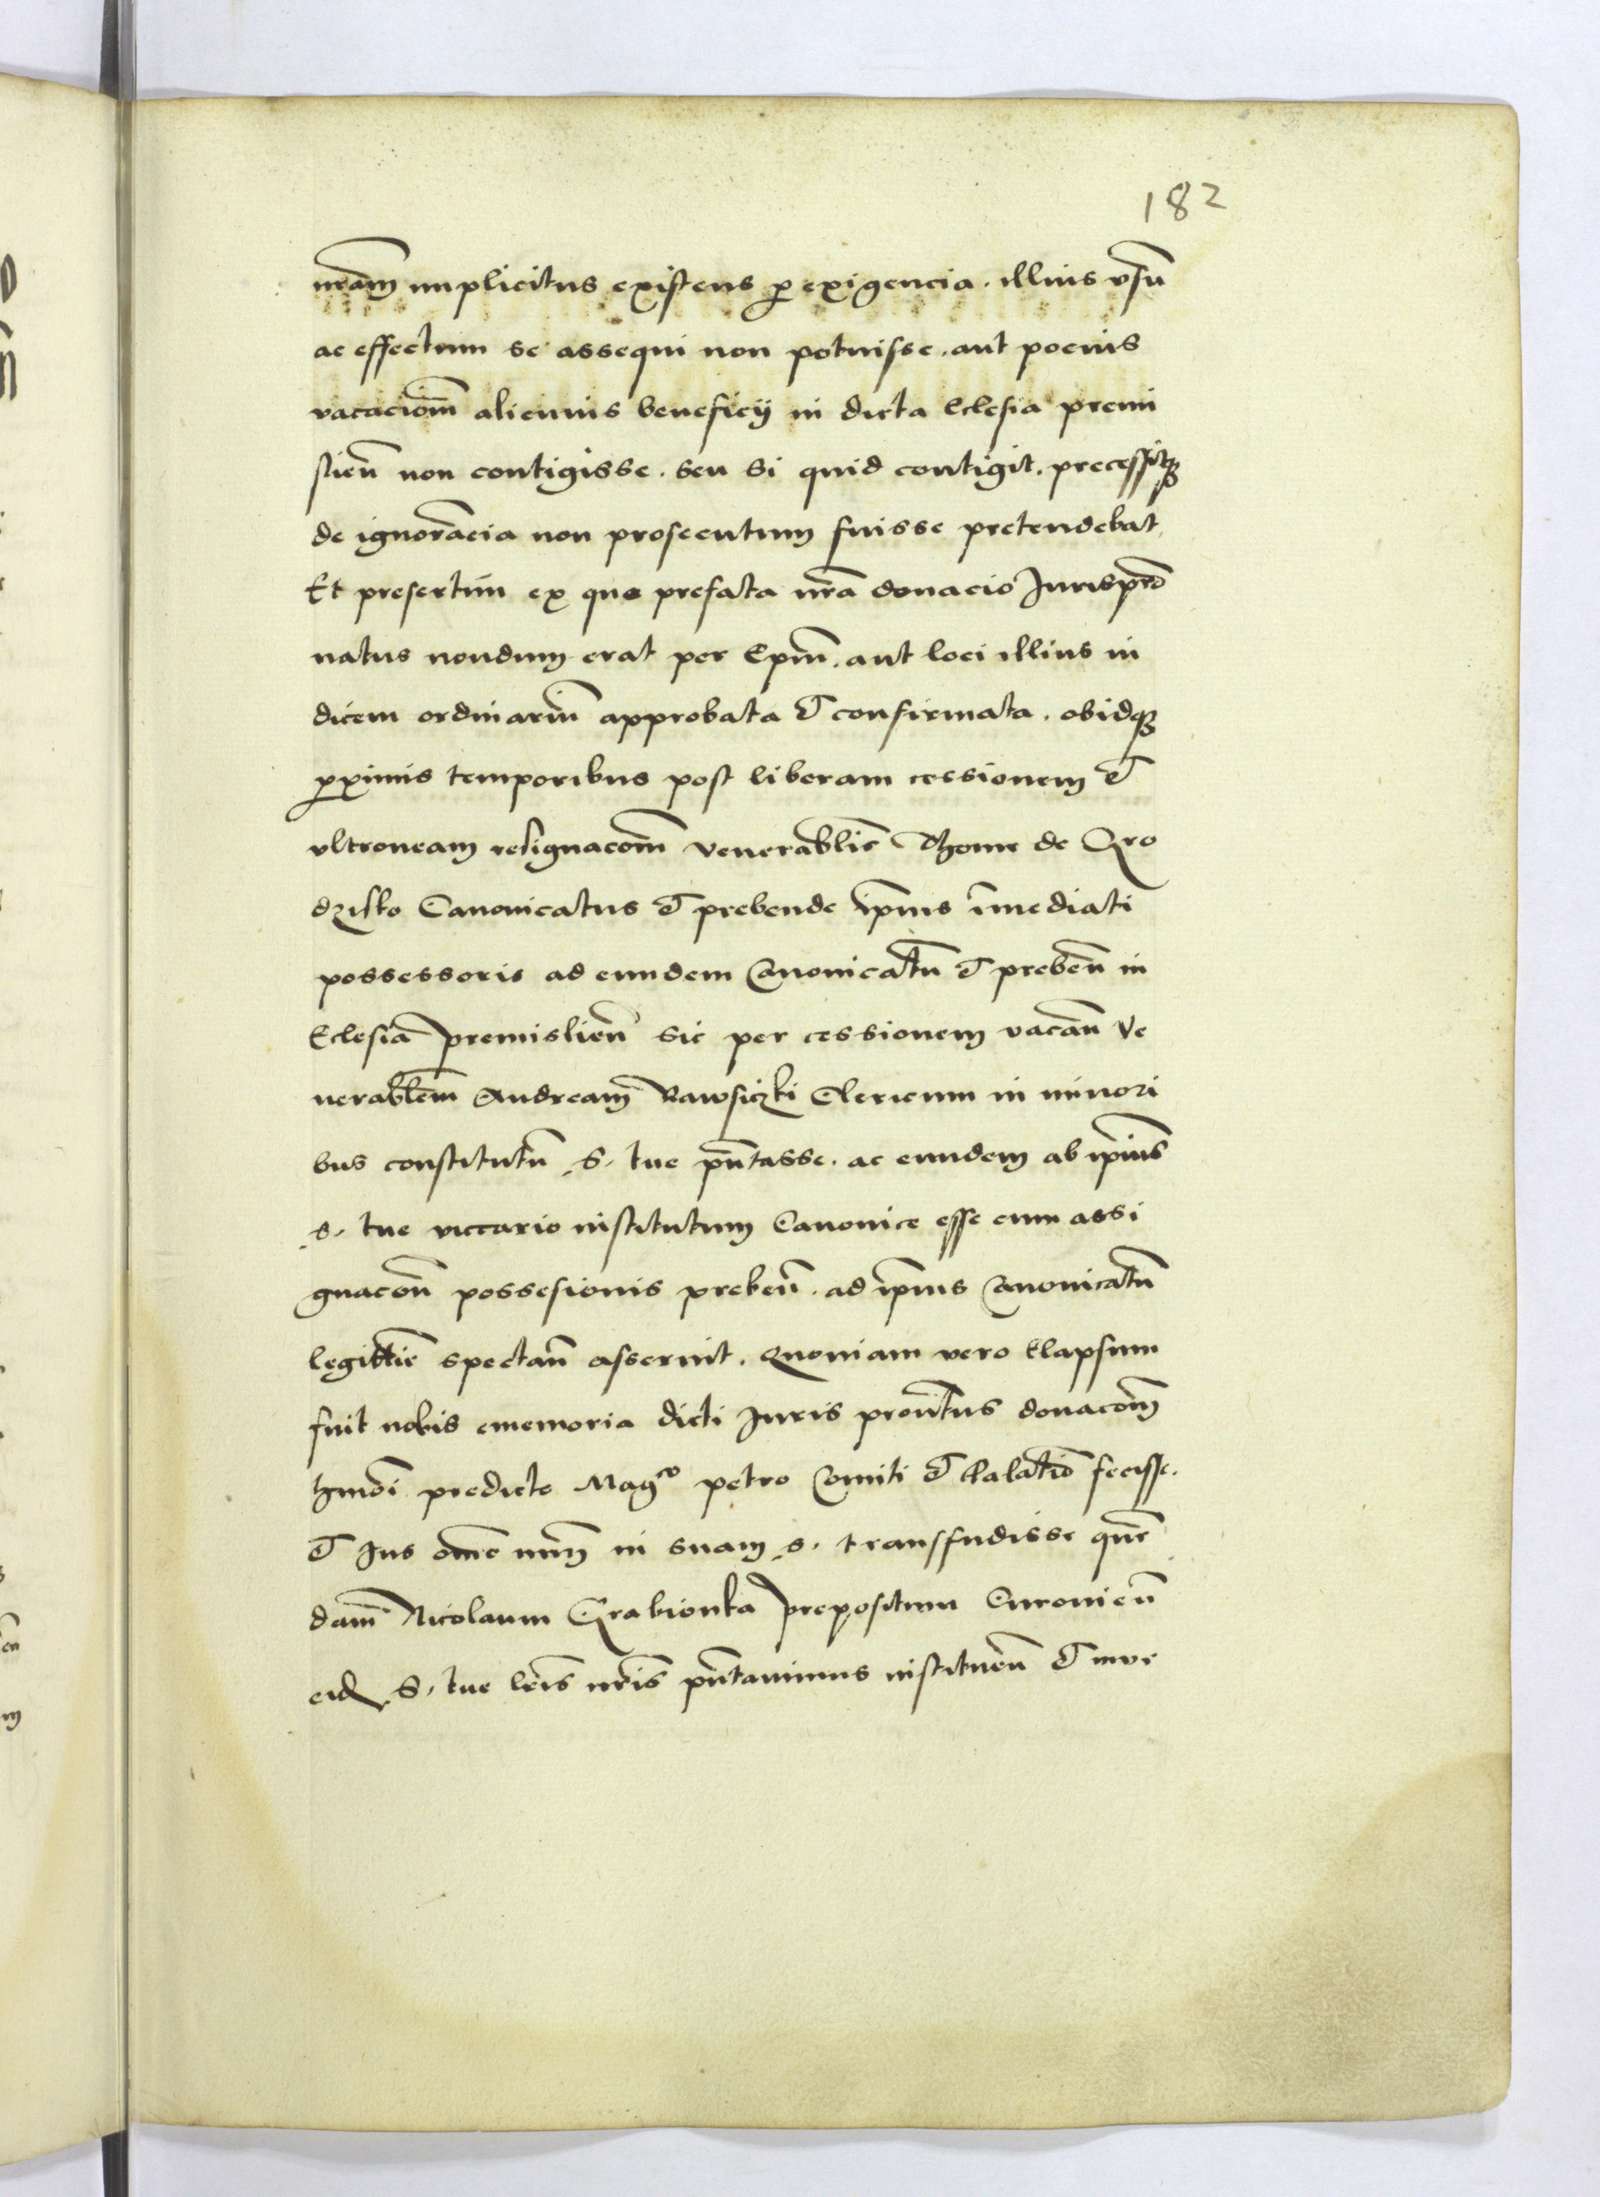 182
nrãm implicitus existens p exigencia. illius vsũ
ac effectum se assequi non potuisse. aut pocius
vacaciom̃ alicuius beneficij in dicta Eclesia premi
slieñ non contigisse. seu si quid contigit. precessitq3
de ignorãcia non prosecutum fuisse pretendebat.
Et presertim ex quo prefata nrã donacio Jurisprõ
natus nondum erat per Epm̃. aut loci illius iu
dicem ordinariũ approbata & confirmata. obidq3
pximis temporibus post liberam cessionem &
vltroneam resignacom̃ venerablis̃ Thome de Gro
dzisko Canonicatus & prebende ip̃ius im̃ediati
possessoris ad eundem Canonicatũ & prebeñ in
Eclesiã premislieñ sic per cessionem vacañ Ve
nerablem̃ Andream Rawsiczki Clericum in minori
bus constitutũ S. tue pñtasse. ac eundem ab ip̃ius
S. tue viccario institutum Canonice esse cum assi
gnacoñ possesionis prebeñ. ad ip̃ius Canonicatũ
legittie̾ spectañ asseruit. Quoniam vero Elapsum
fuit nobis ememoria dicti Juris proñtus donacom̃
hm̃õi predicto Magco petro Comiti & Palatiõ fecisse.
& Jus om̃e nrm̃ in suam S. transfudisse quẽ
dam̃ Nicolaum Grabionka prepositum Curonieñ
eid S. tue lrĩs nrĩs pñtauimus institueñ & inve